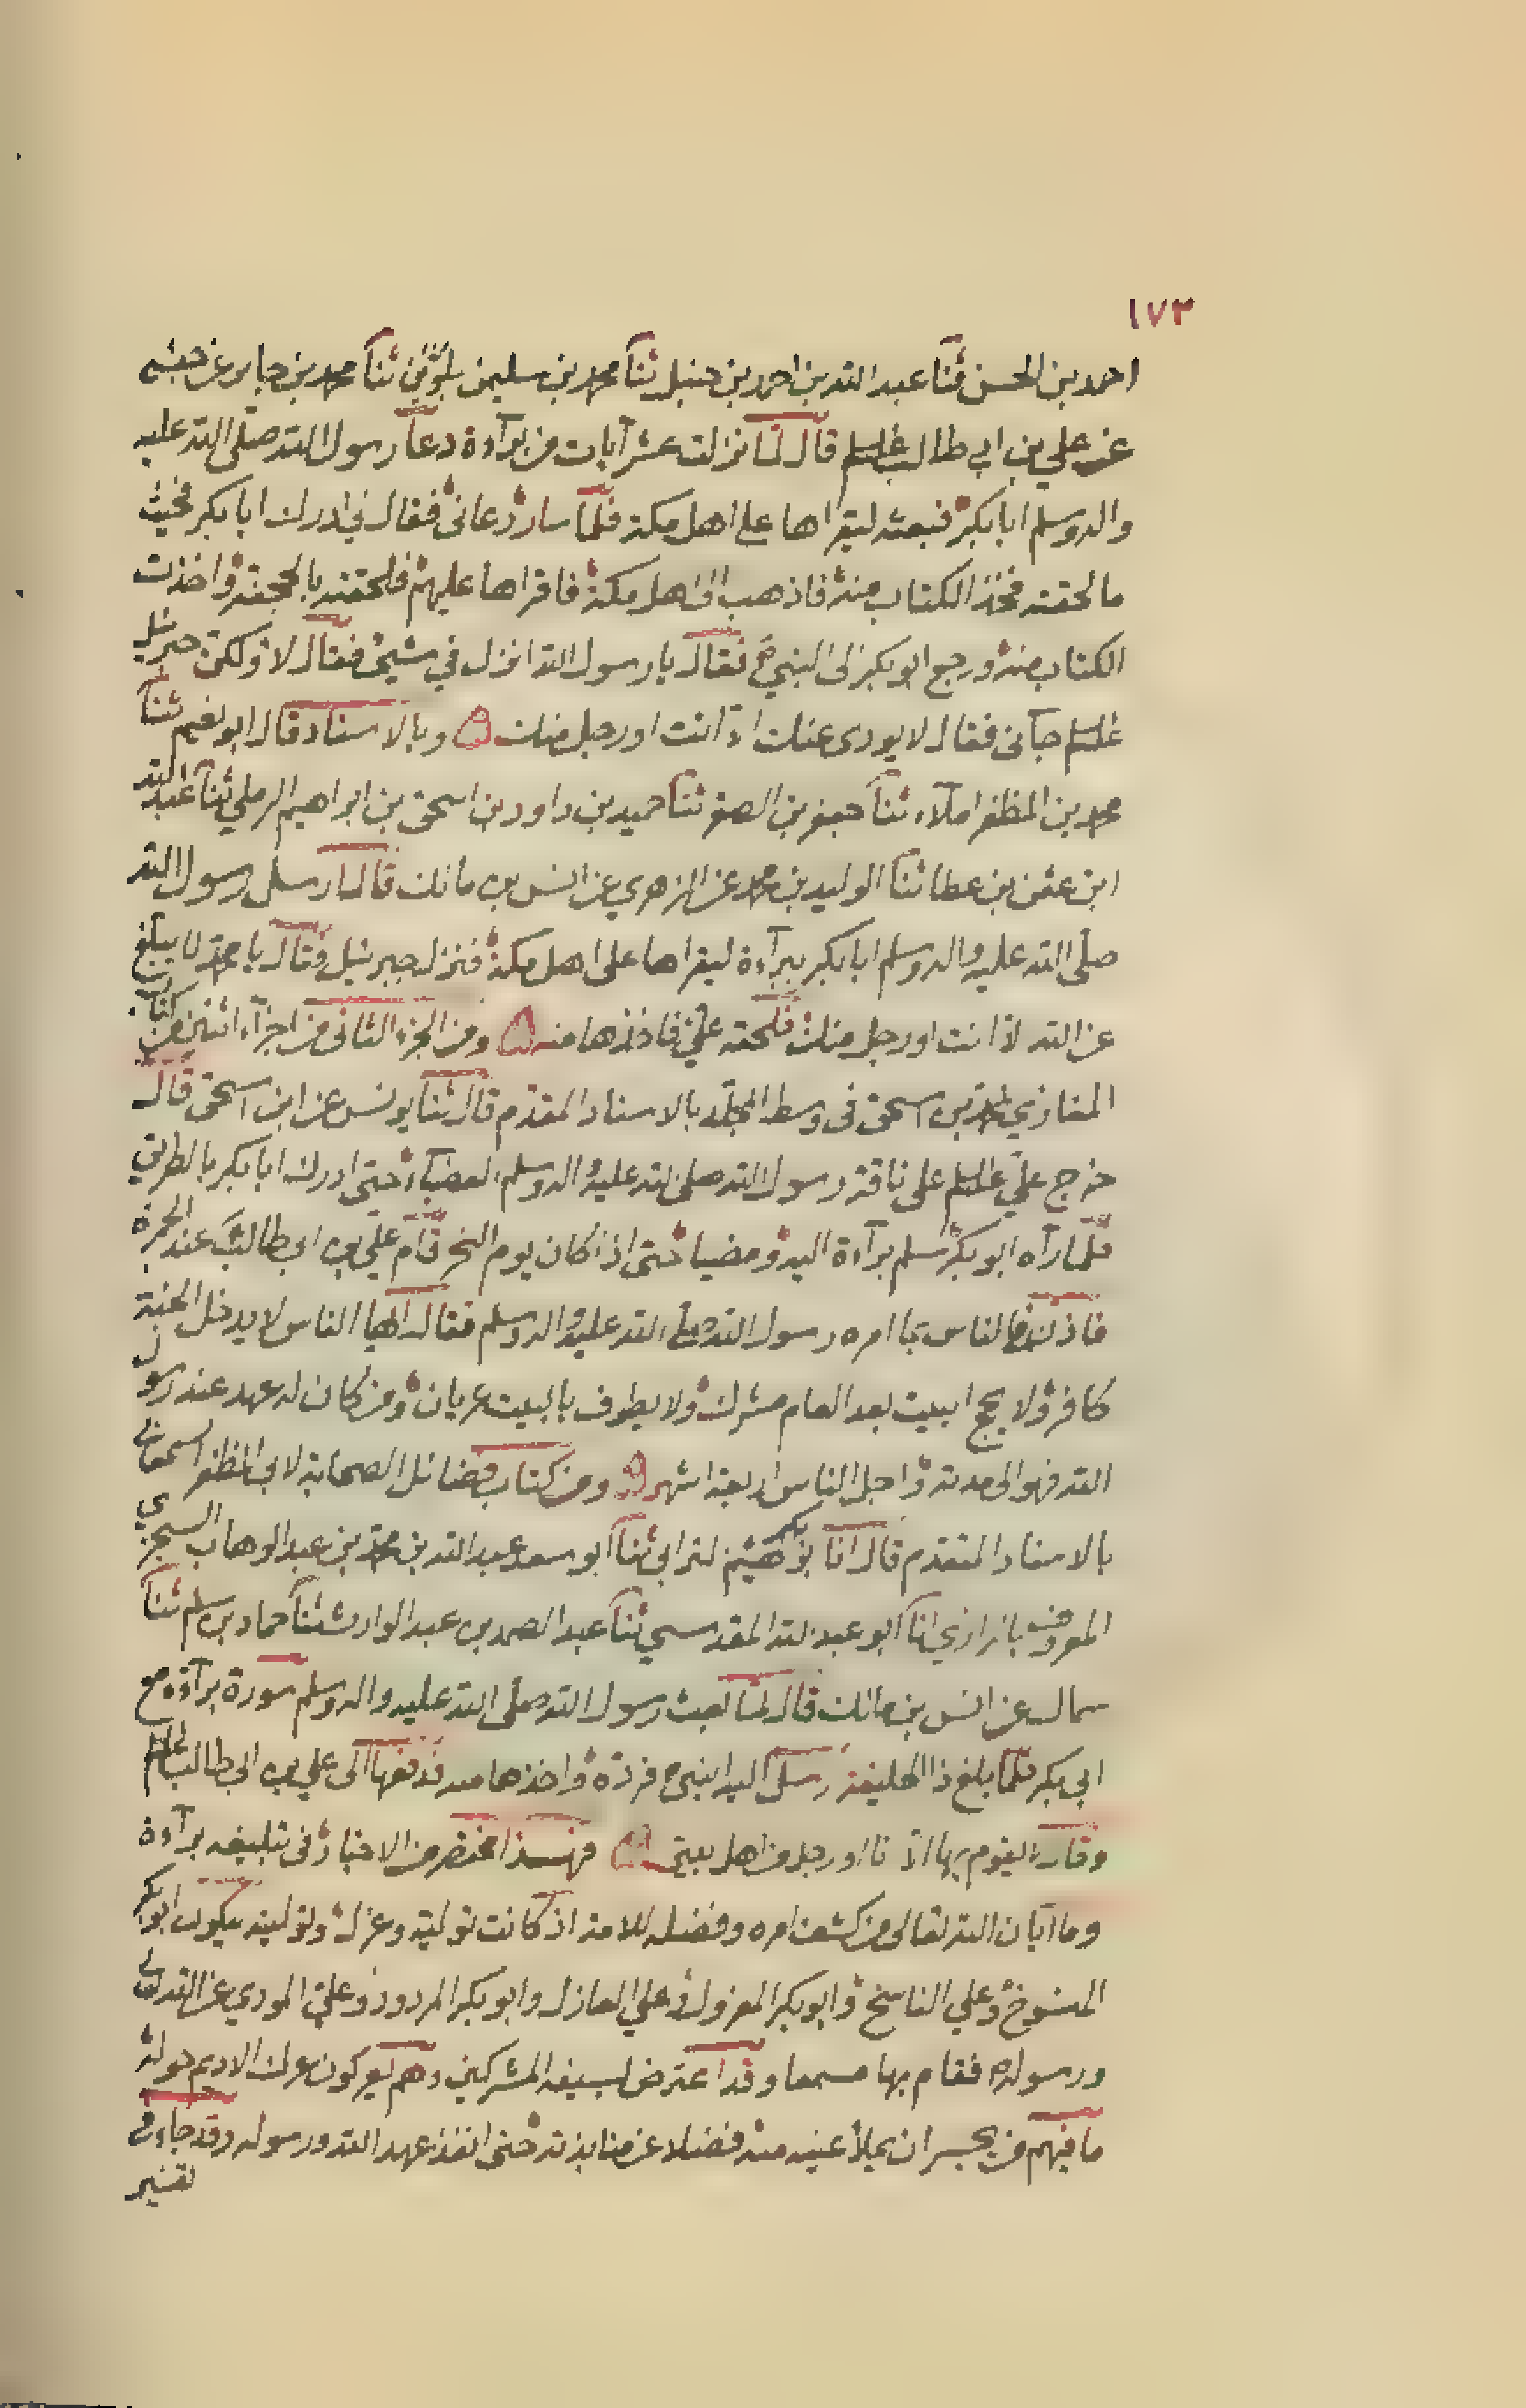 ١٧٣
احمد بن الحسن ثنا عبد الله بن احمد بن حنبل ثنا محمد بن سليمن بلوين ثنا محمد بن جابر عن حبشى
عن علي بن ابي طالب علسلم قال لما نزلت عشر آيات من برآءة دعا رسول الله صلى الله عليه
واله وسلم ابا بكر فبعثه ليقراها على اهل مكة فلما سار دعانى فقال لي ادرك ابا بكر فحيث
ما لحقته فخذ الكتاب منه فاذهب الى اهل مكة فاقراها عليهم فلحقته بالجحفة واخذت
الكتاب منه ورجع ابو بكر الى النبي فقال يا رسول الله انزل في شيئ فقال لا ولكن جبرئيل
علسلم جآنى فقال لا يودى عنك الا انت او رجل منك وبالاسناد قال ابو نعيم ثنا
محمد بن المظفر املآء ثنا جعفر بن الصقر ثنا حميد بن داود بن اسحق بن ابراهيم الرملي ثنا عبد الله
ابن عثمن بن عطا ثنا الوليد بن محمد عن الزهري عن انس بن مالك قال ارسل رسول الله
صلى الله عليه واله وسلم ابا بكر ببرآءة ليقراها على اهل مكة فنزل جبرئيل فقال يا محمد لا يبلغ
عن الله الا انت او رجل منك فلحقه علي فاخذها منه ومن الجزء الثانى من اجزآء اثنين من كتاب
المغازي لمحمد بن اسحق فى وسط المجلد بالاسناد المقدم قال ثنا يونس عن ابن اسحق قال
خرج علي علسلم على ناقة رسول الله صلى الله عليه واله وسلم العضبآء حتى ادرك ابا بكر بالطريق
فلما رآه ابو بكر سلم برآءة اليه ومضيا حتى اذا كان يوم النحر قام علي بن ابى طالب عند الجمرة
فاذن فى الناس بما امره رسول الله صلى الله عليه واله وسلم فقال ايها الناس لا يدخل الجنة
كافر ولا يحج البيت بعد العام مشرك ولا يطوف بالبيت عريان ومن كان له عهد عند رسول
الله فهو الى مدته واجل الناس اربعة اشهر ومن كتاب فضائل الصحابة لابى المظفر السمعانى
بالاسناد المتقدم قال انا بو بكر هيثم الترابى ثنا ابو سعد عبد الله بن محمد بن عبد الوهاب السجزي
المعروف بالرازي انا ابو عبد الله المقدسي ثنا عبد الصمد بن عبد الوارث ثنا حماد بن سلم ثنا
سماك عن انس بن مالك قال لما بعث رسول الله صلى الله عليه واله وسلم سورة برآءة مع
ابى بكر فلما بلغ ذا الحليفة ارسل اليه النبى فرده واخذها منه فدفعها الى علي بن ابى طالب علسلم
وقال لا يقوم بها الا انا او رجل من اهل بيتى فهذا مختصر من الاخبار فى تبليغه برآءة
وما ابان الله تعالى من كشف امره وفضله للامة اذ كانت توليه وعزل وتوليه ليكون ابو بكر
المنسوخ وعلي الناسخ وابو بكر المعزول وعلي العازل وابو بكر المردود وعلي المودي عن الله تعالى
ورسوله فقام بها مسمعا وقد اعترض لسيفه المشركين وهم يعركون عرك الاديم حوله
ما فيهم من يجسر ان يملأ عينه منه فضلا عن منابذته حتى انفذ عهد الله ورسوله وقد جاء فى
تفسير